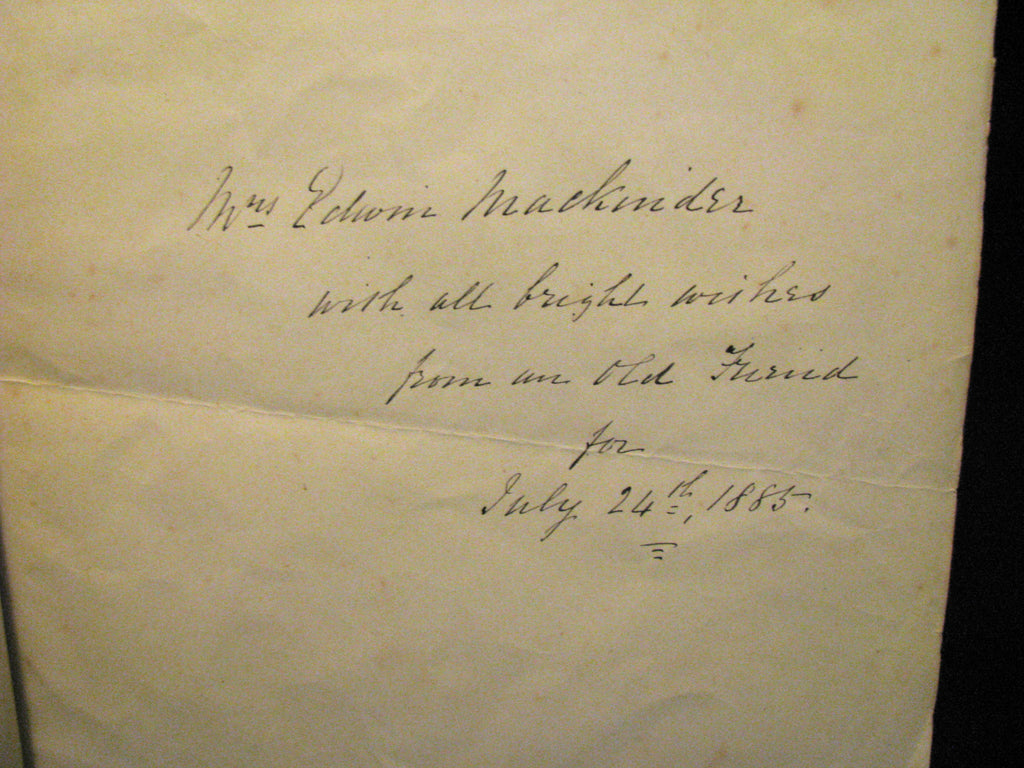 Mrs Edwin Mackinder
with all bright wishes
from an Old Friend
for
July 24th, 1885.